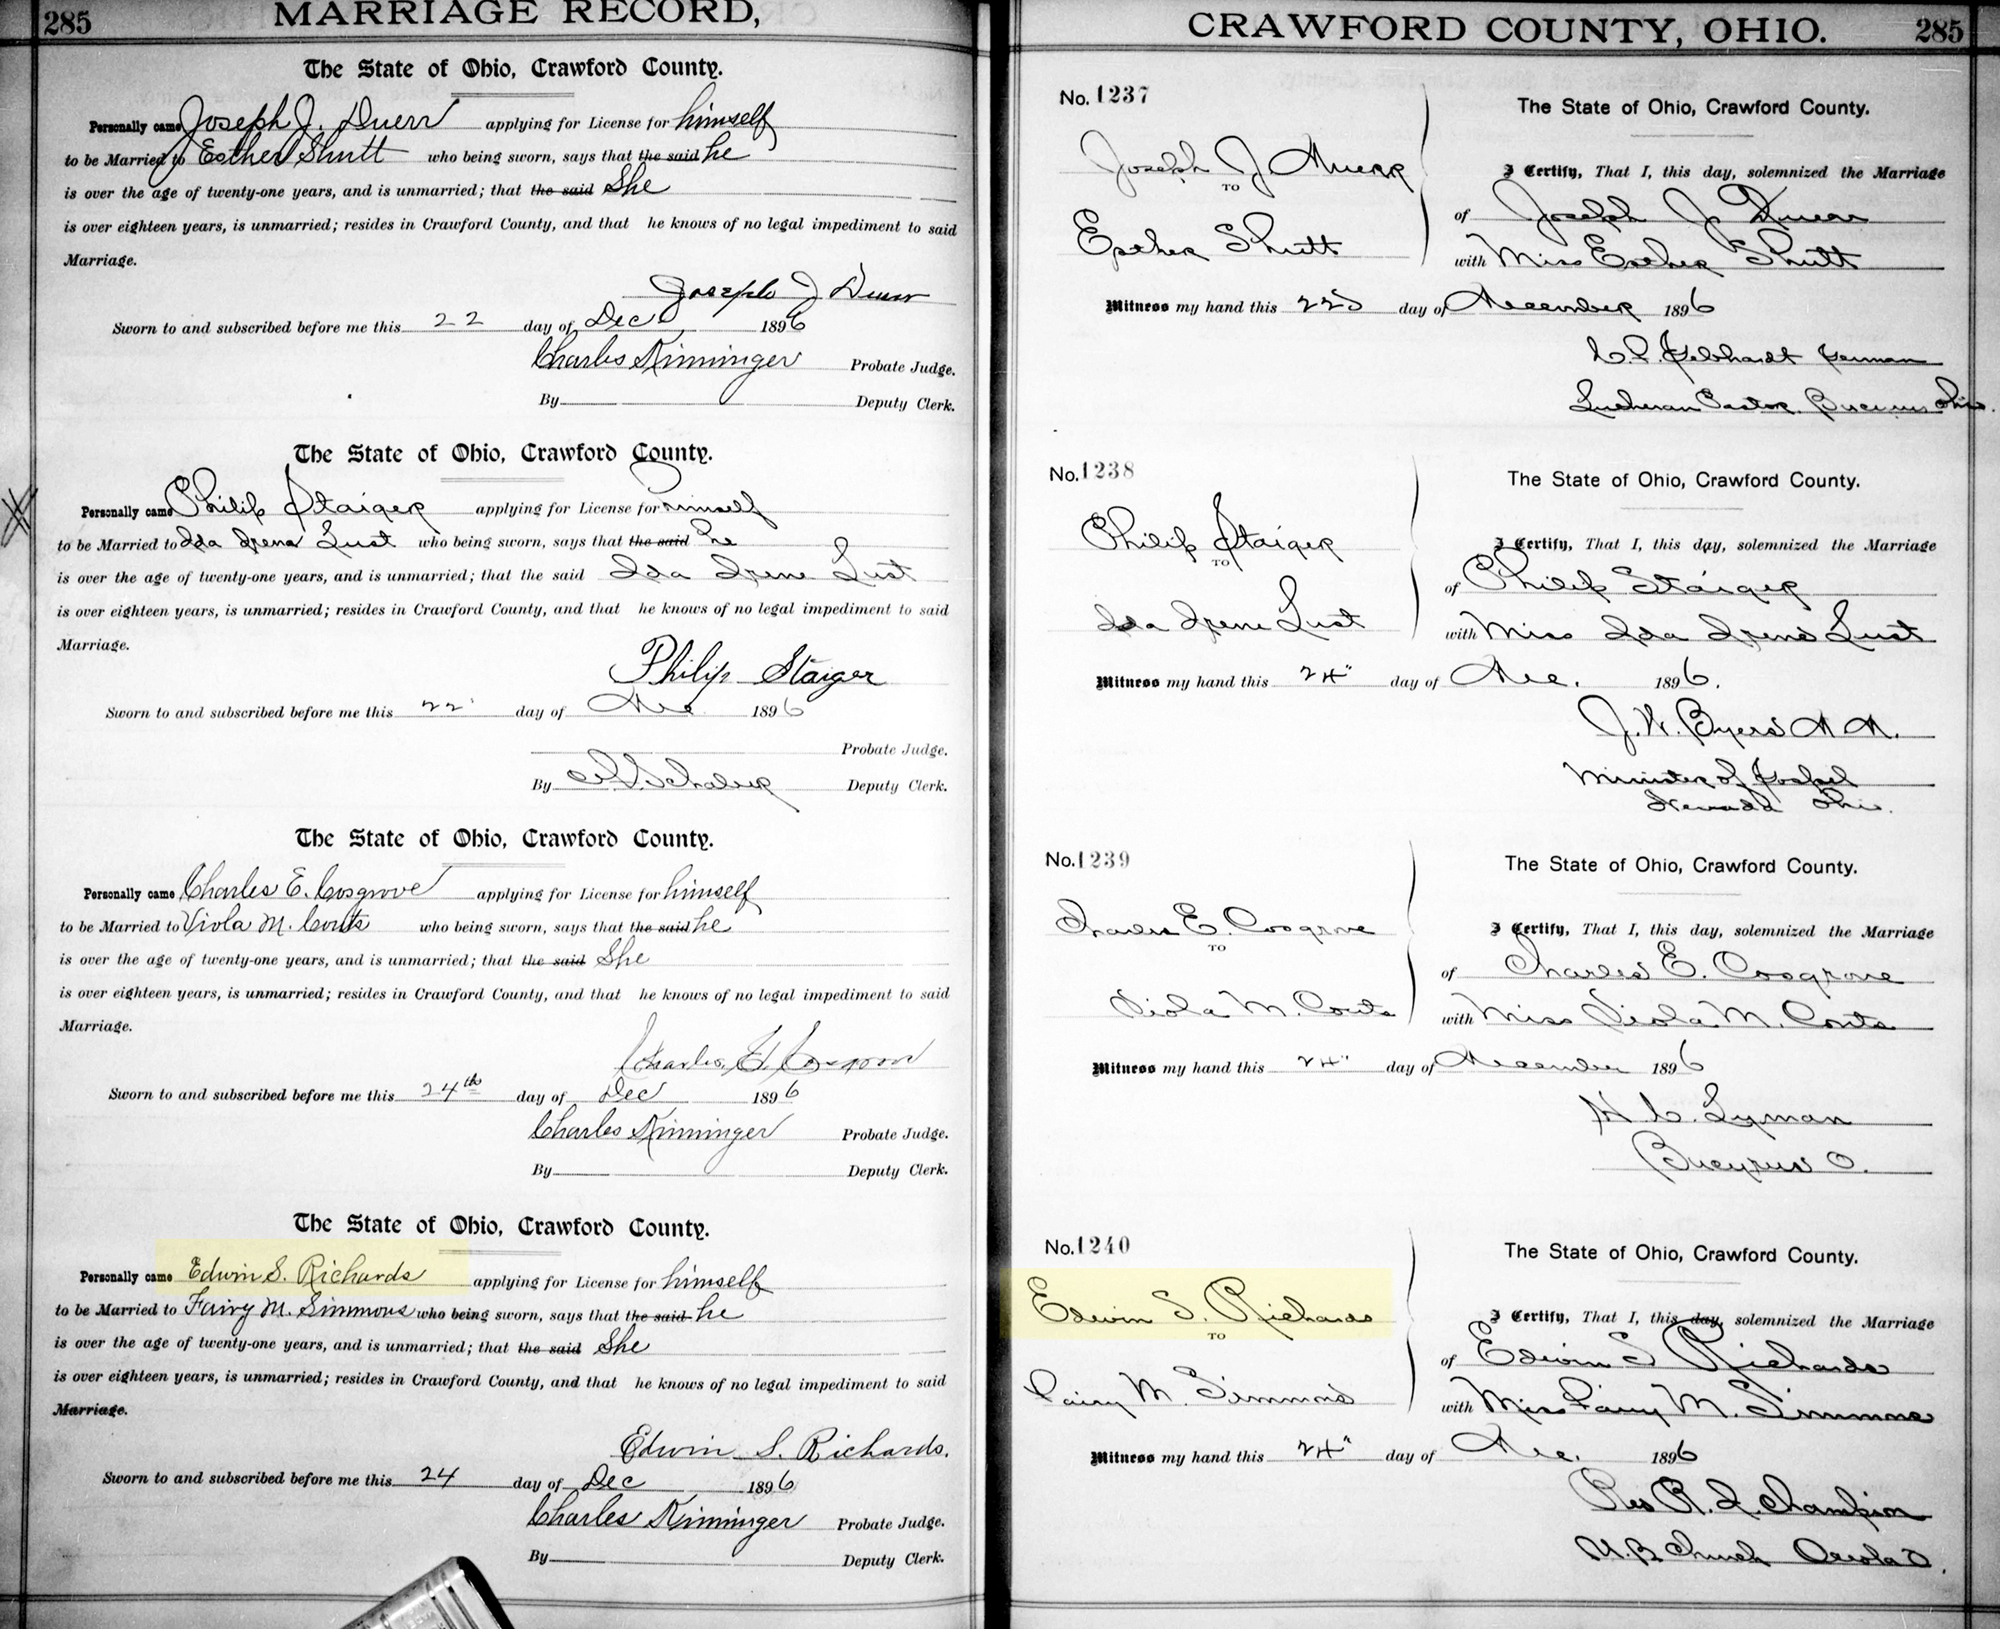 285
MARRIAGE RECORD,
The State of Ohio, Crawford County.
Personally came Joseph J. Duerr applying for License for himself
to be Married to Esther Shutt who being sworn, says that the said he
is over the age of twenty-one years, and is unmarried; that the said She
is over eighteen years, is unmarried; resides in Crawford County, and that he knows of no legal impediment to said
Marriage.
Joseph J Duerr
Sworn to and subscribed before me this 22 day of Dec 1896
Charles Kinninger Probate Judge.
By Deputy Clerk.
The State of Ohio, Crawford County.
Personally came Philip Staiger applying for License for himself
to be Married to Ida Irene Lust who being sworn, says that the said he
is over the age of twenty-one years, and is unmarried; that the said Ida Irene Lust
is over eighteen years, is unmarried; resides in Crawford County, and that he knows of no legal impediment to said
Marriage.
Philip Staiger
Sworn to and subscribed before me this 22" day of Dec 1896
Probate Judge.
By Deputy Clerk.
The State of Ohio, Crawford County.
Personally came Charles E. Cosgrove applying for License for himself
to be Married to Viola M. Couts who being sworn, says that the said he
is over the age of twenty-one years, and is unmarried; that the said She
is over eighteen years, is unmarried; resides in Crawford County, and that he knows of no legal impediment to said
Marriage.
Charles E. Cosgrove
Sworn to and subscribed before me this 24th day of Dec 1896
Charles Kinninger Probate Judge.
By Deputy Clerk.
The State of Ohio, Crawford County.
Personally came Edwin S. Richards applying for License for himself
to be Married to Fairy M. Simmons who being sworn, says that the said he
is over the age of twenty-one years, and is unmarried; that the said She
is over eighteen years, is unmarried; resides in Crawford County, and that he knows of no legal impediment to said
Marriage.
Edwin S. Richards.
Sworn to and subscribed before me this 24 day of Dec 1896
Charles Kinninger Probate Judge.
By Deputy Clerk.
CRAWFORD COUNTY, OHIO.
285
No. 1237
Joseph J Duerr
TO
Esther Shutt
The State of Ohio, Crawford County.
I Certify, That I, this day, solemnized the Marriage
of Joseph J Duerr
with Miss Esther Shutt
Witness my hand this 22d day of December 1896
Gebhardt German
Lutheran Pastor Bucyrus Ohio.
No. 1238
Philip Staiger
TO
Ida Irene Lust
The State of Ohio, Crawford County.
I Certify, That I, this day, solemnized the Marriage
of Philip Staiger
with Miss Ida Irene Lust
Witness my hand this 24" day of Dec. 1896.
J. W. Byers D D.
Minister of Gospel
Nevada Ohio.
No. 1239
Charles E. Cosgrove
TO
Viola M. Couts
The State of Ohio, Crawford County.
I Certify, That I, this day, solemnized the Marriage
of Charles E. Cosgrove
with Miss Viola M. Couts
Witness my hand this 24" day of December 1896
H C. Lyman
Bucyrus O.
No. 1240
Edwin S. Richards
TO
Fairy M. Simmons
The State of Ohio, Crawford County.
I Certify, That I, this day, solemnized the Marriage
of Edwin S Richards
with Miss Fairy M. Simmons
Witness my hand this 24" day of Dec. 1896
Rev R. L. Champion
U. B Church Oceola O.